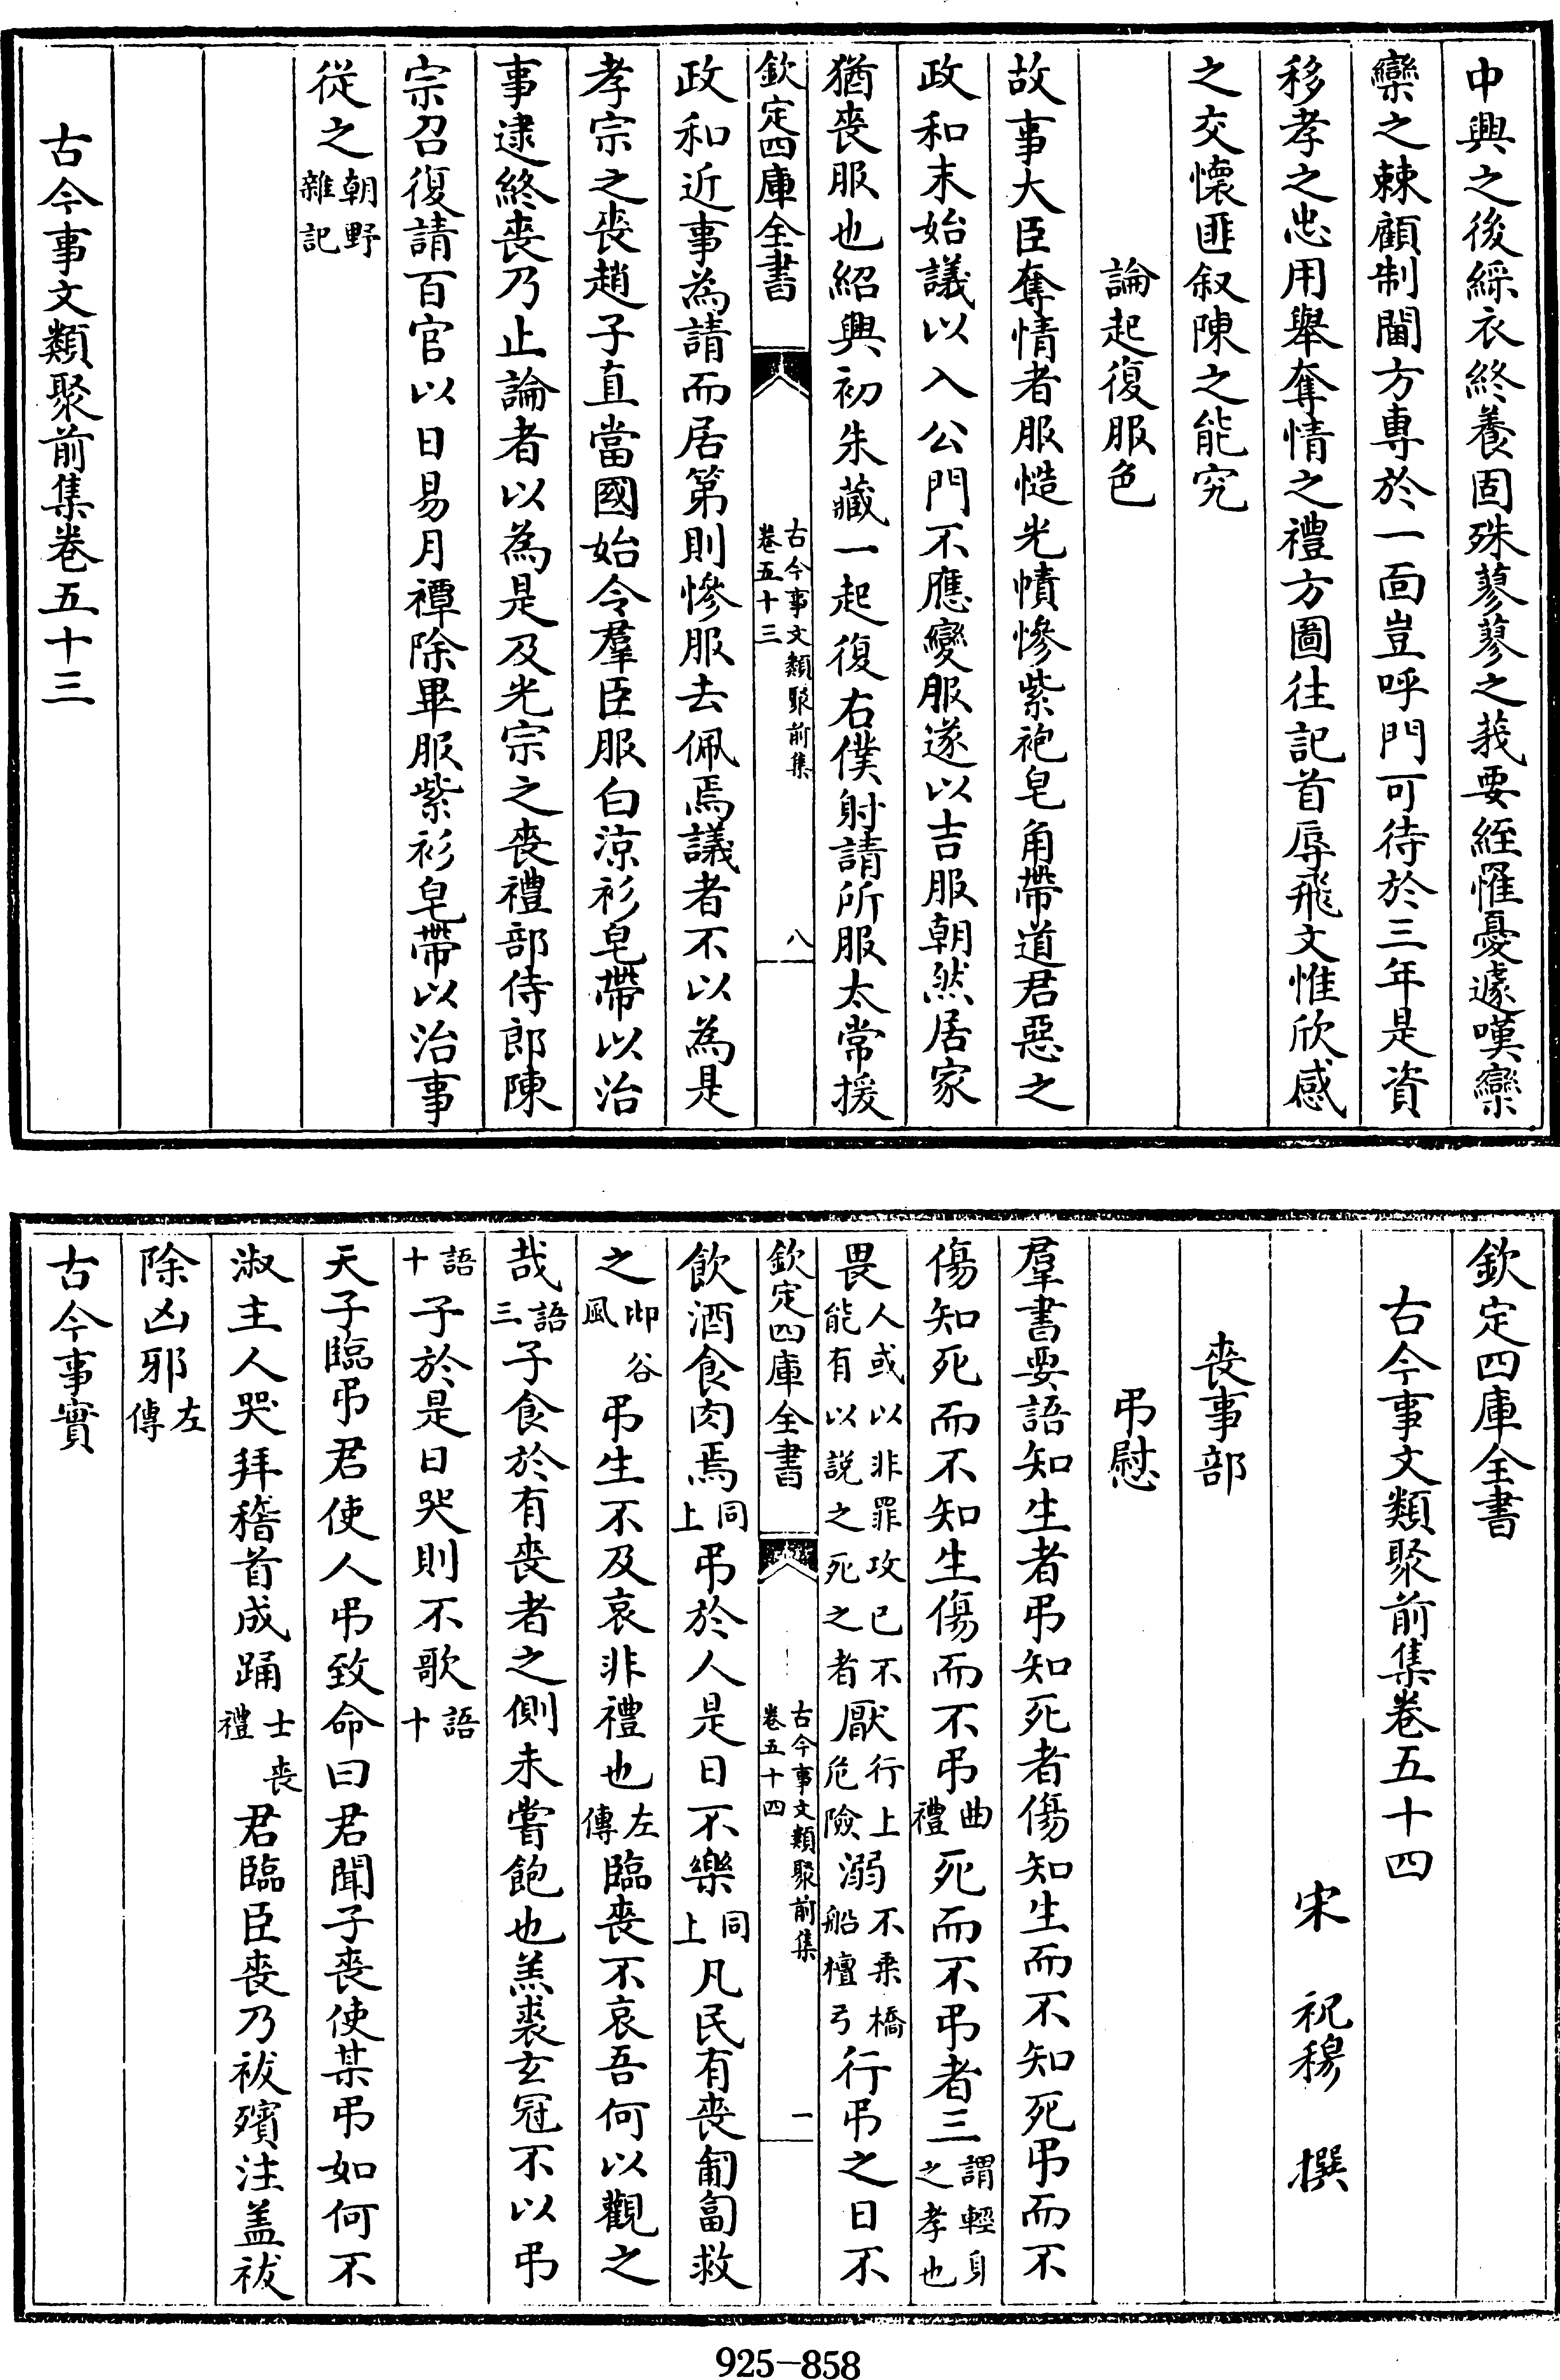 中興之後綵衣終養固殊蓼蓼之莪要絰罹憂遽嘆欒
欒之棘顧制閫方專於一面豈呼門可待於三年是資
移孝之忠用舉奪情之禮方圖往記首辱飛文惟欣感
之交懷匪叙陳之能究
論起復服色
故事大臣奪情者服慥光幘慘紫袍皂角帶道君惡之
政和末始議以入公門不應變服遂以吉服朝然居家
猶喪服也紹興初朱藏一起復右僕射請所服太常援
欽定四庫全書
古今事文類聚前集
卷五十三
八
政和近事為請而居第則慘服去佩焉議者不以為是
孝宗之喪趙子直當國始令羣臣服白涼衫皂帶以治
事逮終喪乃止論者以為是及光宗之喪禮部侍郎陳
宗召復請百官以日易月禫除畢服紫衫皂帶以治事
從之朝野
雜記
古今事文類聚前集卷五十三
欽定四庫全書
古今事文類聚前集卷五十四
宋 祝穆 撰
喪事部
弔慰
羣書要語知生者弔知死者傷知生而不知死弔而不
傷知死而不知生傷而不弔曲禮死而不弔者三謂輕身之孝也
畏人或以非罪攻已不能有以説之死之者厭行上危險溺不乗橋船檀弓行弔之日不
欽定四庫全書
古今事文類聚前集
卷五十四
一
飲酒食肉焉同上弔於人是日不樂同上凡民有喪匍匐救
之邶谷風弔生不及哀非禮也左傳臨喪不哀吾何以觀之
哉語三子食於有喪者之側未嘗飽也羔裘玄冠不以弔
語十子於是日哭則不歌語十
天子臨弔君使人弔致命曰君聞子喪使某弔如何不
淑主人哭拜稽首成踊士喪禮君臨臣喪乃祓殯注盖祓
除凶邪左傳
古今事實
925-858